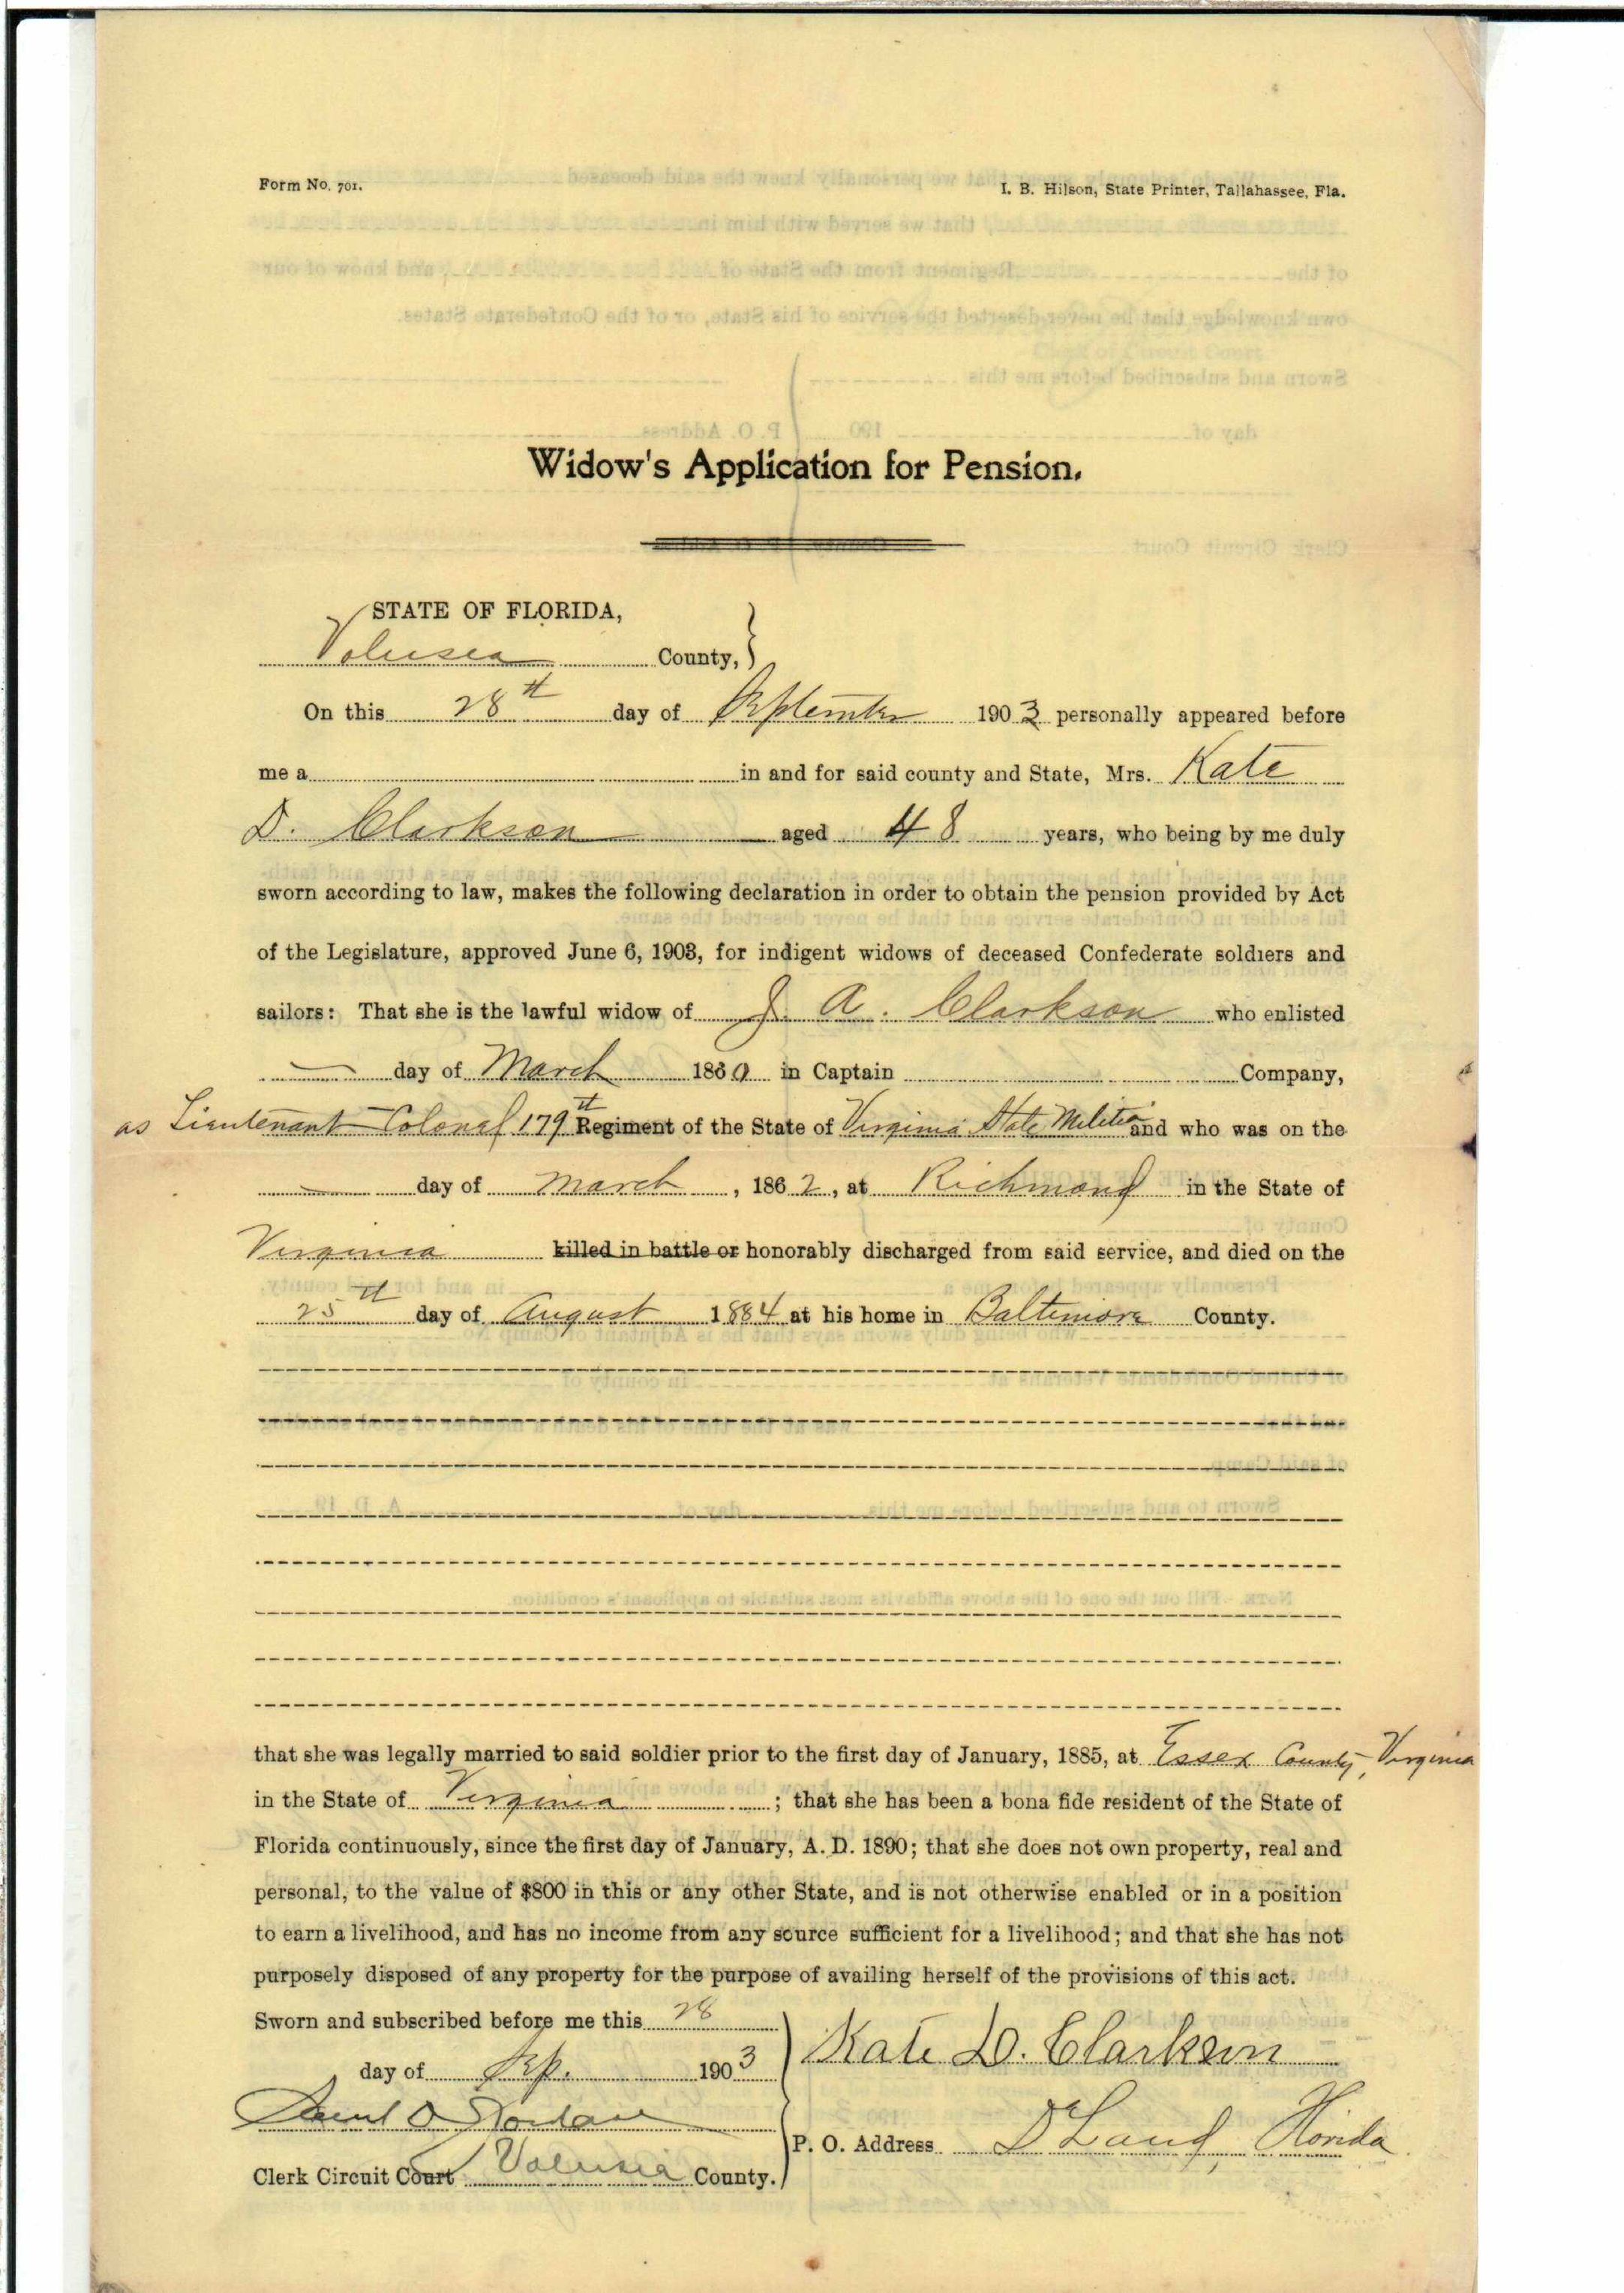 Form No. 701.
I. B. Hilson, State Printer, Tallahassee, Fla.
Widow's Application for Pension.
STATE OF FLORIDA,
Volusia County,
On this 28th day of September 1903 personally appeared before
me a in and for said county and State, Mrs. Kate
D. Clarkson aged 48 years, who being by me duly
sworn according to law, makes the following declaration in order to obtain the pension provided by Act
of the Legislature, approved June 6, 1903, for indigent widows of deceased Confederate soldiers and
sailors: That she is the lawful widow of J. A. Clarkson who enlisted
day of March 1860 in Captain Company,
as Lieutenant-Colonel 179th Regiment of the State of Virginia State Militia and who was on the
day of March, 1862, at Richmond in the State of
Virginia killed in battle or honorably discharged from said service, and died on the
25th day of August 1884 at his home in Baltimore County.
that she was legally married to said soldier prior to the first day of January, 1885, at Essex County, Virginia
in the State of Virginia; that she has been a bona fide resident of the State of
Florida continuously, since the first day of January, A. D. 1890; that she does not own property, real and
personal, to the value of $800 in this or any other State, and is not otherwise enabled or in a position
to earn a livelihood, and has no income from any source sufficient for a livelihood; and that she has not
purposely disposed of any property for the purpose of availing herself of the provisions of this act.
Sworn and subscribed before me this 28
day of Sep. 1903
Kate D. Clarkson
P. O. Address DeLand, Florida
Clerk Circuit Court Volusia County.